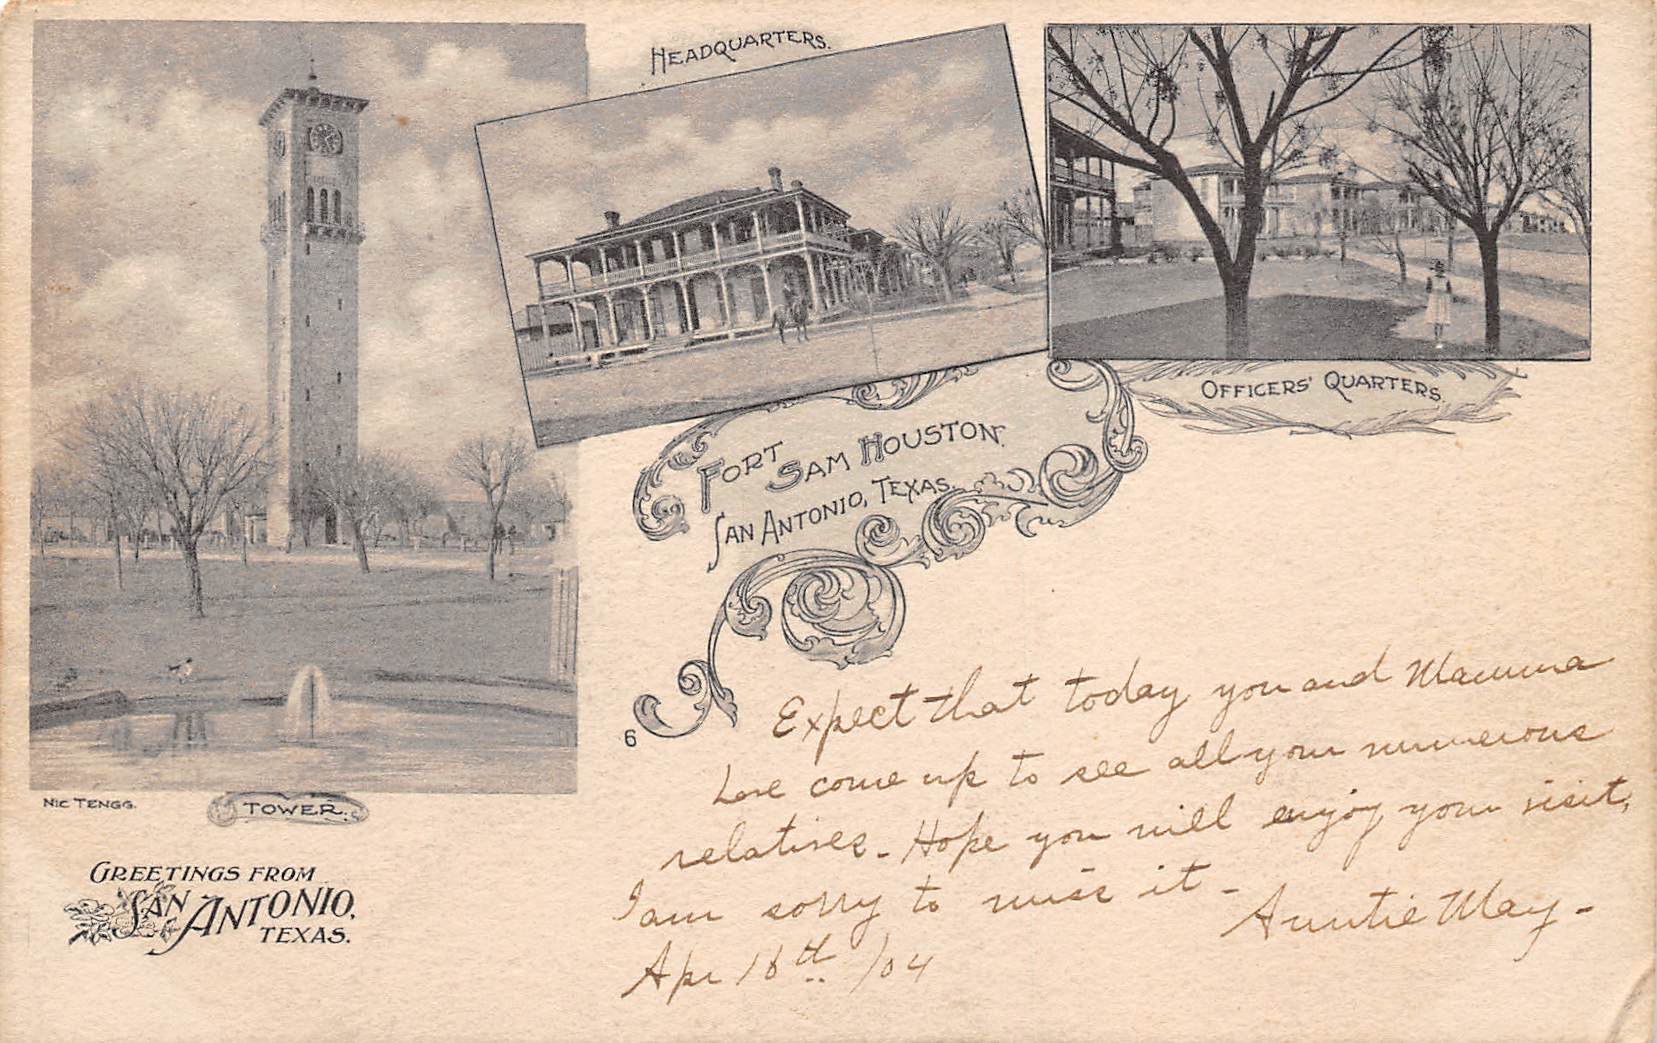 HEADQUARTERS.
OFFICERS' QUARTERS.
FORT SAM HOUSTON.
SAN ANTONIO, TEXAS.
6
NIC TENGG.
TOWER.
GREETINGS FROM
SAN ANTONIO,
TEXAS.
Expect that today you and Mamma
have come up to see all your numerous
relatives - Hope you will enjoy your visit,
I am sorry to miss it -
Auntie May -
Apr 16th /04